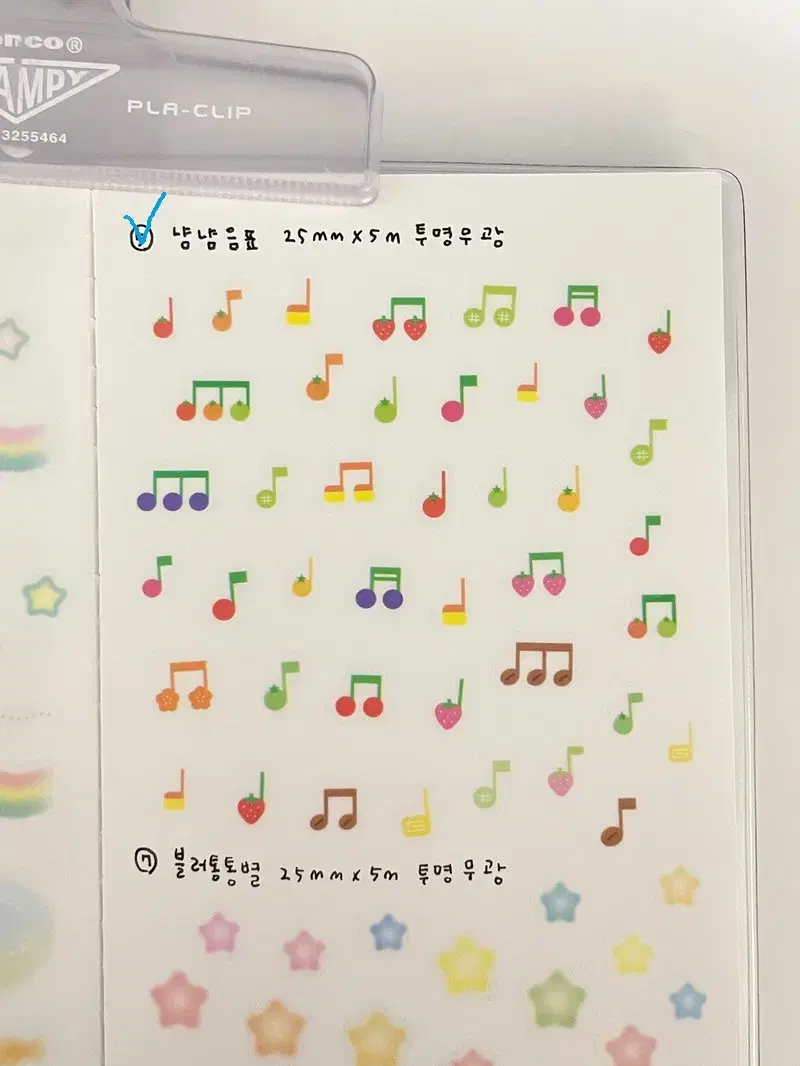 enco®
AMPY
3255464
PLA-CLIP
냠냠음표 25mm x 5m 투명무광
⑦ 블러통통별 25mm x 5m 투명무광